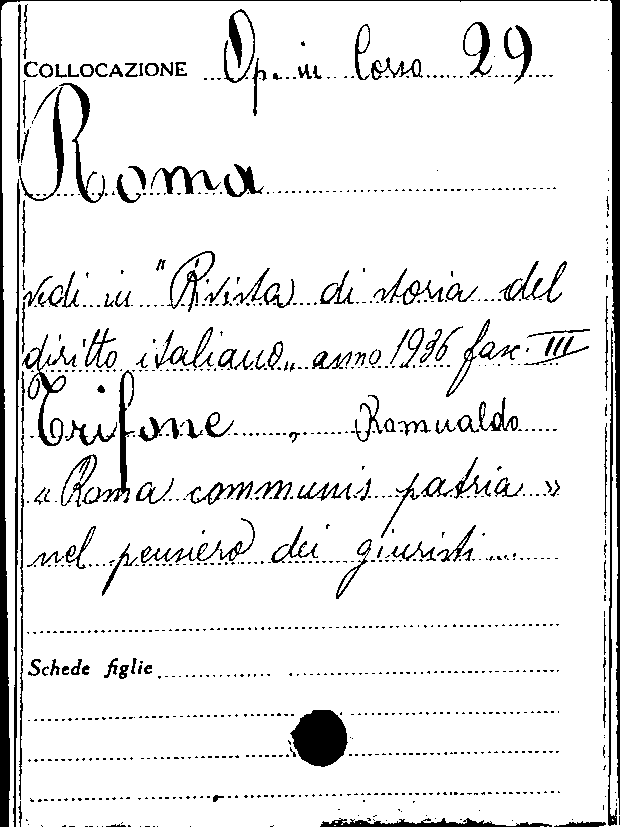 COLLOCAZIONE Op. in Corso 29
Roma
vedi in "Rivista di storia del
diritto italiano„ anno 1936 fasc. III
Trifone, Romualdo
« Roma communis patria »
nel pensiero dei giuristi....
Schede figlie